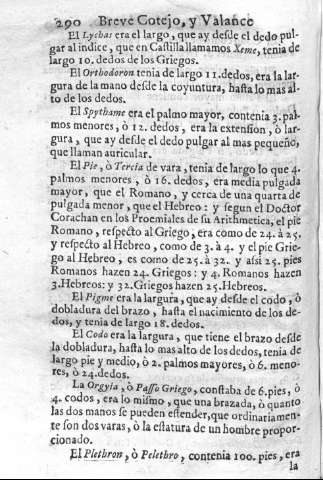 290 Breve Cotejo, y Valance
El Lychas era el largo, que ay desde el dedo pul-
gar al indice, que en Castilla llamamos Xeme, tenia de
largo 10. dedos de los Griegos.
El Orthodoron tenia de largo 11. dedos, era la lar-
gura de la mano desde la coyuntura, hasta lo mas al-
to de los dedos.
El Spythame era el palmo mayor, contenia 3. pal-
mos menores, ò 12. dedos, era la extension, ò lar-
gura, que ay desde el dedo pulgar al mas pequeño,
que llaman auricular.
El Pie, ò Tercia de vara, tenia de largo lo que 4.
palmos menores, ò 16. dedos, era media pulgada
mayor, que el Romano, y cerca de una quarta de
pulgada menor, que el Hebreo: y segun el Doctor
Corachan en los Proemiales de su Arithmetica, el pie
Romano, respecto al Griego, era como de 24. à 25.
y respecto al Hebreo, como de 3. à 4. y el pie Grie-
go al Hebreo, es como de 25. à 32. y assi 25. pies
Romanos hazen 24. Griegos: y 4. Romanos hazen
3. Hebreos: y 32. Griegos hazen 25. Hebreos.
El Pigme era la largura, que ay desde el codo, ò
dobladura del brazo, hasta el nacimiento de los de-
dos, y tenia de largo 18. dedos.
El Codo era la largura, que tiene el brazo desde
la dobladura, hasta lo mas alto de los dedos, tenia de
largo pie y medio, ò 2. palmos mayores, ò 6. meno-
res, ò 24. dedos.
La Orgyia, ò Passo Griego, constaba de 6. pies, ò
4. codos, era lo mismo, que una brazada, ò quanto
las dos manos se pueden estender, que ordinariamen-
te son dos varas, ò la estatura de un hombre propor-
cionado.
El Plethron, ò Pelethro, contenia 100. pies, era
la